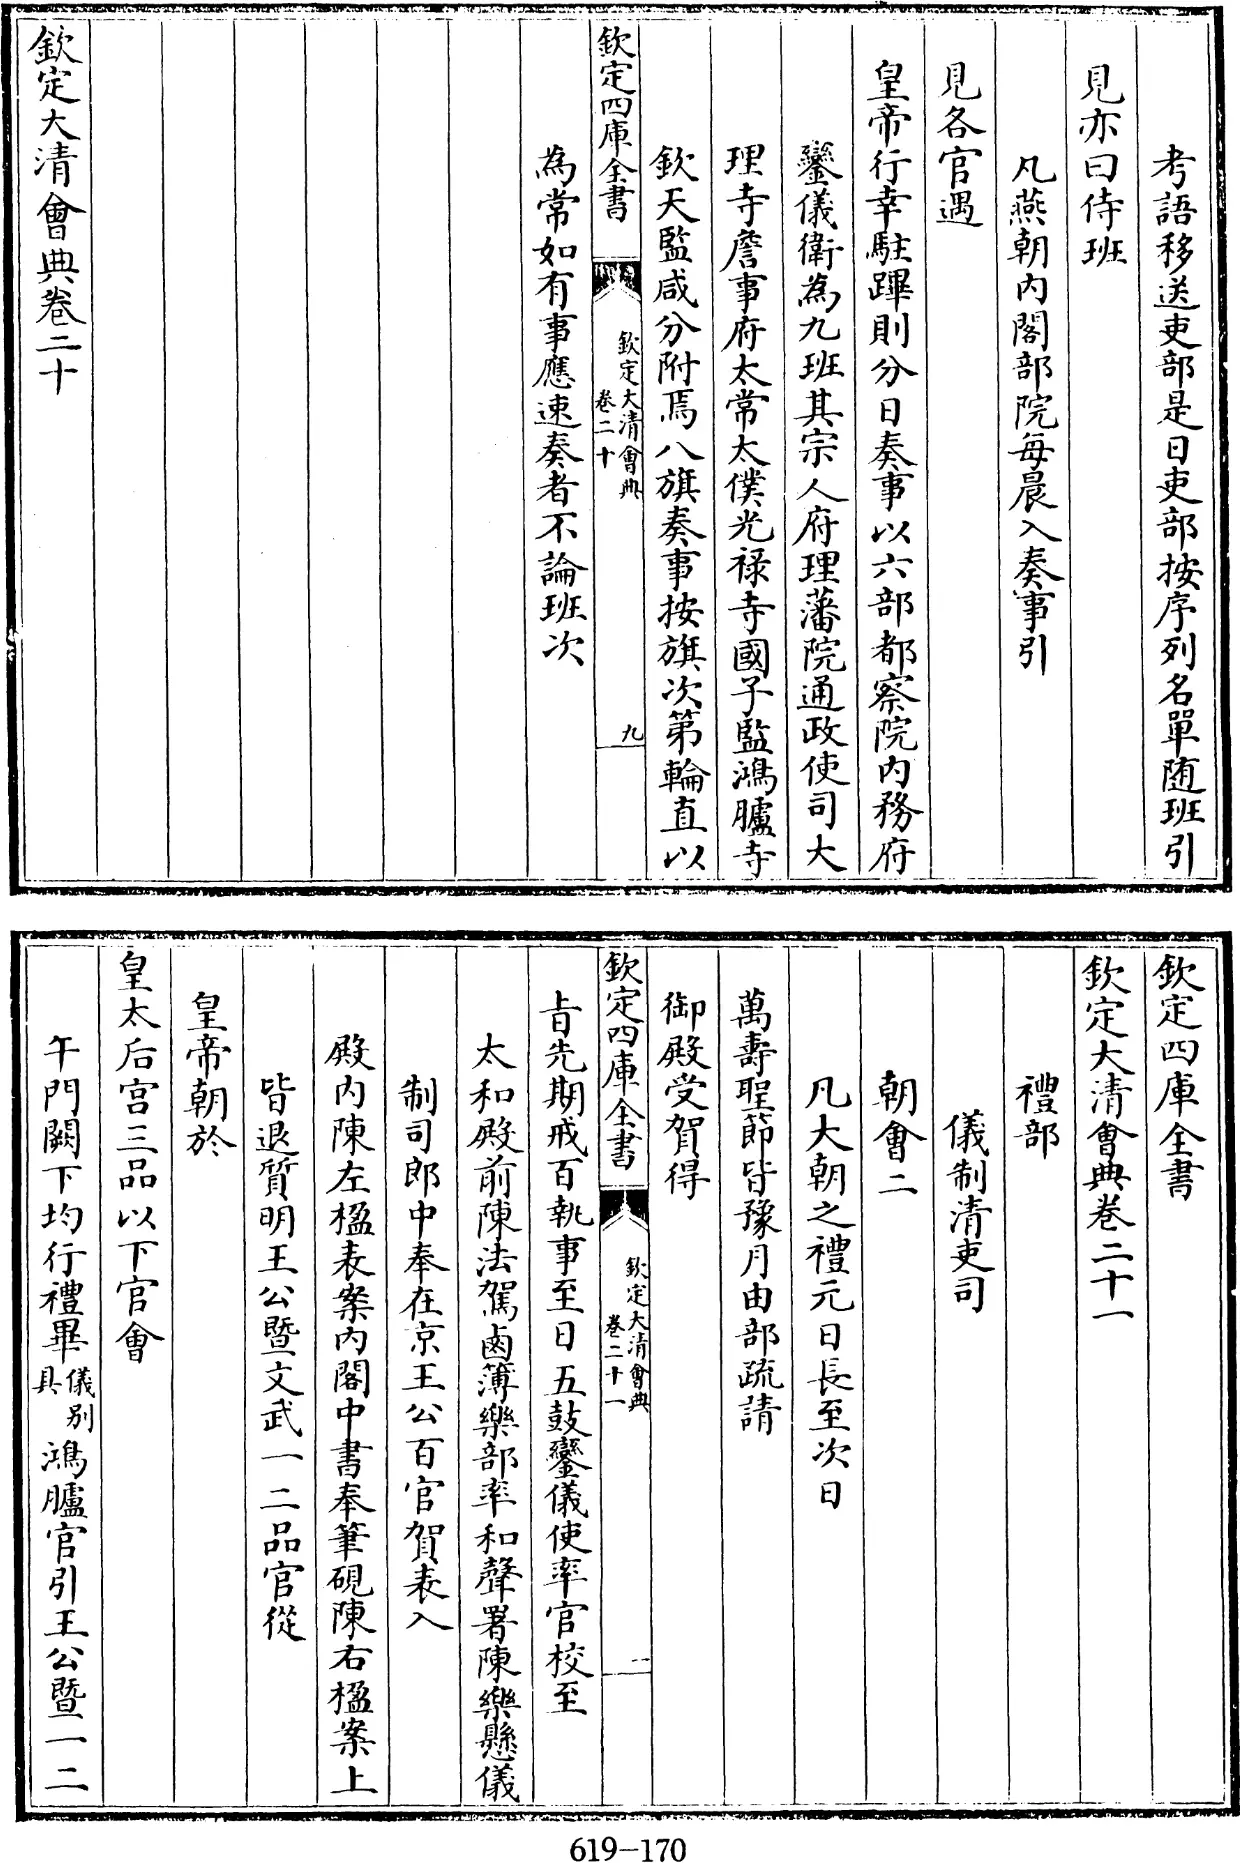 考語移送吏部是日吏部按序列名單随班引
見亦曰侍班
凡燕朝内閣部院每晨入奏事引
見各官遇
皇帝行幸駐蹕則分日奏事以六部都察院内務府
鑾儀衛為九班其宗人府理藩院通政使司大
理寺詹事府太常太僕光禄寺國子監鴻臚寺
欽天監咸分附焉八旗奏事按旗次第輪直以
欽定四庫全書
欽定大清會典
卷二十
九
為常如有事應速奏者不論班次
欽定大清會典卷二十
欽定四庫全書
欽定大清會典卷二十一
禮部
儀制清吏司
朝會二
凡大朝之禮元日長至次日
萬壽聖節皆豫月由部疏請
御殿受賀得
欽定四庫全書
欽定大清會典
卷二十一
一
旨先期戒百執事至日五鼓鑾儀使率官校至
太和殿前陳法駕鹵簿樂部率和聲署陳樂懸儀
制司郎中奉在京王公百官賀表入
殿内陳左楹表案内閣中書奉筆硯陳右楹案上
皆退質明王公暨文武一二品官從
皇帝朝於
皇太后宫三品以下官會
午門闕下均行禮畢儀别具鴻臚官引王公暨一二
619-170